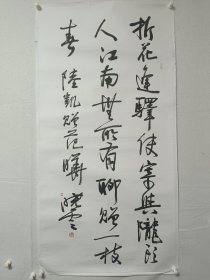 折花逢驛使寄與隴頭
人江南無所有聊贈一枝
春 陸凱贈范曄